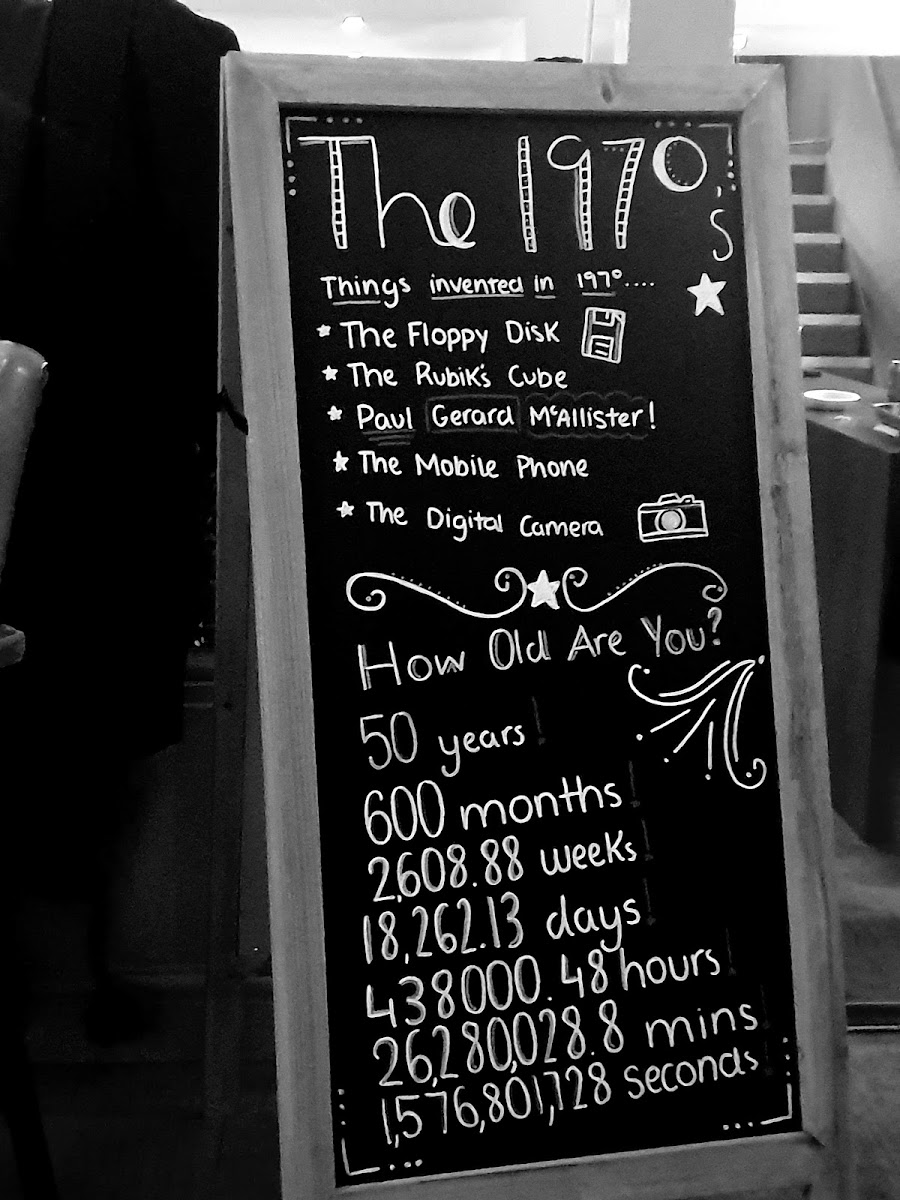 The 1970's
Things invented in 1970....
The Floppy Disk
The Rubik's Cube
Paul Gerard McAllister!
The Mobile Phone
The Digital Camera
How Old Are You?
50 years
600 months
2,608.88 weeks
18,262.13 days
438000.48 hours
26,280,028.8 mins
1,576,801,728 seconds